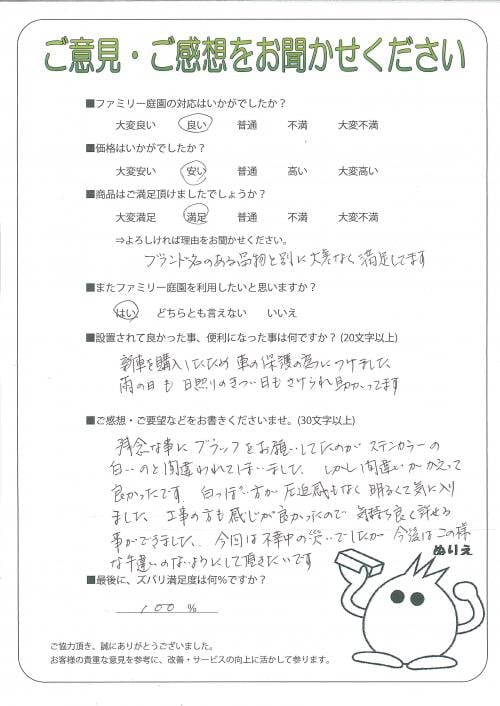 ご意見・ご感想をお聞かせください
■ファミリー庭園の対応はいかがでしたか？
大変良い 良い 普通 不満 大変不満
■価格はいかがでしたか？
大変安い 安い 普通 高い 大変高い
■商品はご満足頂けましたでしょうか？
大変満足 満足 普通 不満 大変不満
⇒よろしければ理由をお聞かせください。
ブランド名のある品物と別に大差なく満足してます
■またファミリー庭園を利用したいと思いますか？
はい どちらとも言えない いいえ
■設置されて良かった事、便利になった事は何ですか？(20文字以上)
新車を購入したため 車の保護の為につけました
雨の日も 日照りのきつい日もさけられ助かってます
■ご感想・ご要望などをお書きくださいませ。(30文字以上)
残念な事に ブラックをお願いしてたのが ステンカラーの
白いのと間違われてしまいました しかし間違いがかえって
良かったです 白っぽい方が圧迫感もなく明るくて気に入り
ました 工事の方も感じが良かったので 気持ち良く許せる
事ができました、今回は不幸中の幸いでしたが 今後はこの様
な手違いのないようにして頂きたいです
ぬりえ
■最後に、ズバリ満足度は何％ですか？
100 %
ご協力頂き、誠にありがとうございました。
お客様の貴重な意見を参考に、改善・サービスの向上に活かして参ります。